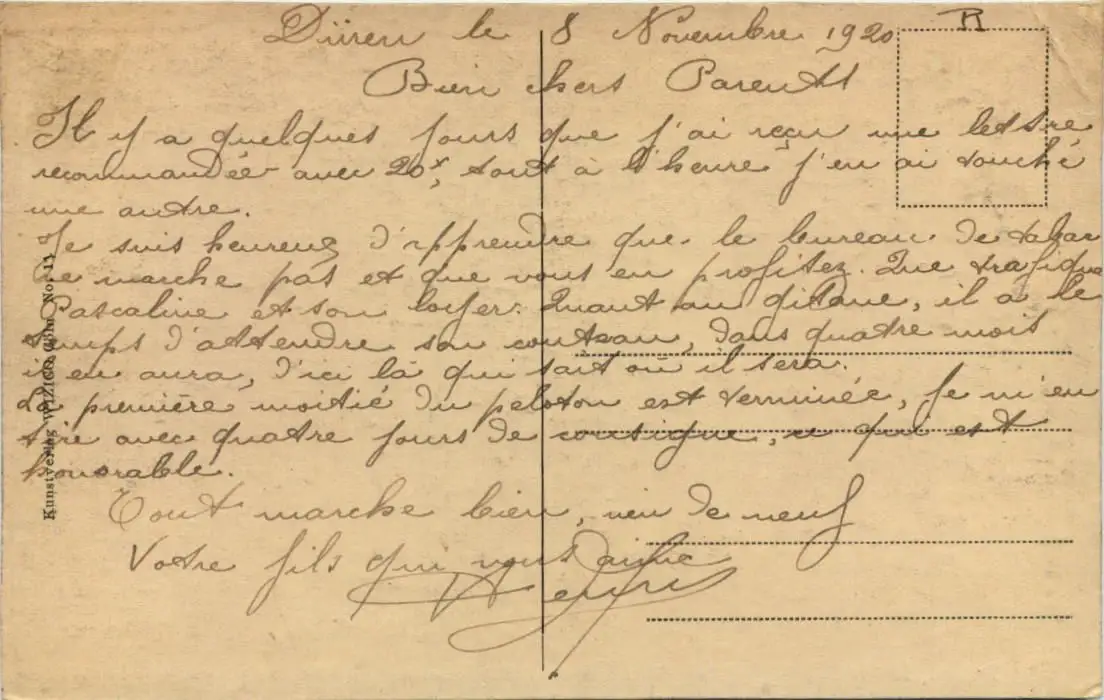 R
Düren le 8 Novembre 1920
Bien chers Parents
Il y a quelques jours que j'ai reçu une lettre
recommandée avec 20 f, tout à l'heure j'en ai touché
une autre.
Je suis heureux d'apprendre que le bureau de tabac
ne marche pas et que vous en profitez. Que trafique
Pascaline et son loyer. Quant au gitane, il a le
temps d'attendre son couteau, dans quatre mois
il en aura, d'ici là qui sait où il sera.
La première moitié du peloton est terminée, Je m'en
tire avec quatre jours de consigne, ce qui est
honorable.
Tout marche bien, rien de neuf
Votre fils qui vous aime
Henri
Kunstverlag No. 11